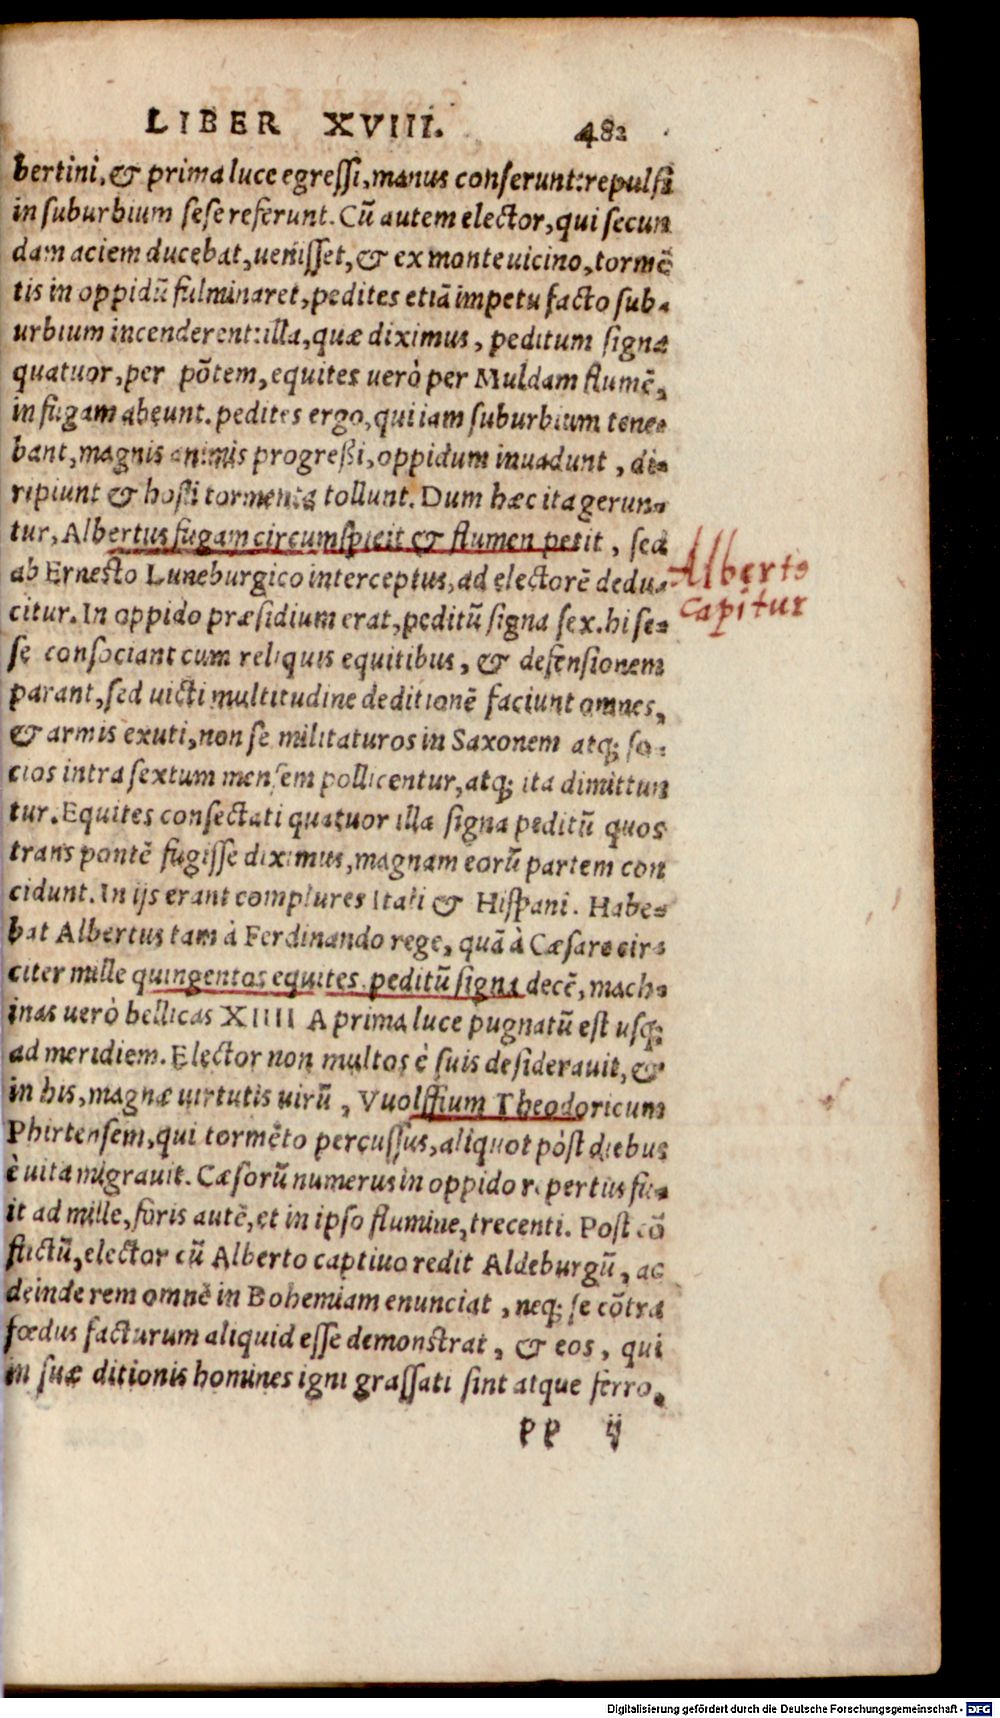 LIBER XVIII. 482
bertini, & prima luce egressi, manus conserunt: repulsi
in suburbium sese referunt. Cũ autem elector, qui secun
dam aciem ducebat, uenisset, & ex monte uicino, tormẽ
tis in oppidũ fulminaret, pedites etiã impetu facto sub-
urbium incenderent: illa, quæ diximus, peditum signa
quatuor, per põtem, equites uerò per Muldam flumẽ,
in fugam abeunt. pedites ergo, qui iam suburbium tene-
bant, magnis animis progreßi, oppidum inuadunt, di-
ripiunt & hosti tormenta tollunt. Dum hæc ita gerun-
tur, Albertus fugam circumspicit & flumen petit, sed
ab Ernesto Luneburgico interceptus, ad electorẽ dedu-
citur. In oppido præsidium erat, peditũ signa sex. hi se-
se consociant cum reliquis equitibus, & defensionem
parant, sed uicti multitudine deditionẽ faciunt omnes,
& armis exuti, non se militaturos in Saxonem atq; so-
cios intra sextum mensem pollicentur, atq; ita dimittun
tur. Equites consectati quatuor illa signa peditũ quos
trans pontẽ fugisse diximus, magnam eorũ partem con
cidunt. In ijs erant complures Itali & Hispani. Habe-
bat Albertus tam à Ferdinando rege, quã à Cæsare cir-
citer mille quingentos equites, peditũ signa decẽ, mach-
inas uerò bellicas XIIII A prima luce pugnatũ est usq;
ad meridiem. Elector non multos è suis desiderauit, &
in his, magnæ uirtutis uirũ, Vuolffium Theodoricum
Phirtensem, qui tormẽto percussus, aliquot pòst diebus
è uita migrauit. Cæsorũ numerus in oppido repertus fu-
it ad mille, foris autẽ, et in ipso flumine, trecenti. Post cõ
flictũ, elector cũ Alberto captiuo redit Aldeburgũ, ac
deinde rem omnẽ in Bohemiam enunciat, neq; se cõtra
fœdus facturum aliquid esse demonstrat, & eos, qui
in suæ ditionis homines igni grassati sint atque ferro,
pp ij
Albertꝰ
capitur
Digitalisierung gefördert durch die Deutsche Forschungsgemeinschaft - DFG